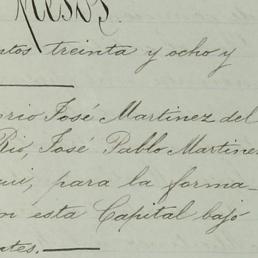 Mesos.
ntos treinta y ocho y
rio José Martinez del
Rio, José Pablo Martine
ui, para la forma-
n esta Capital bajó
ntes.